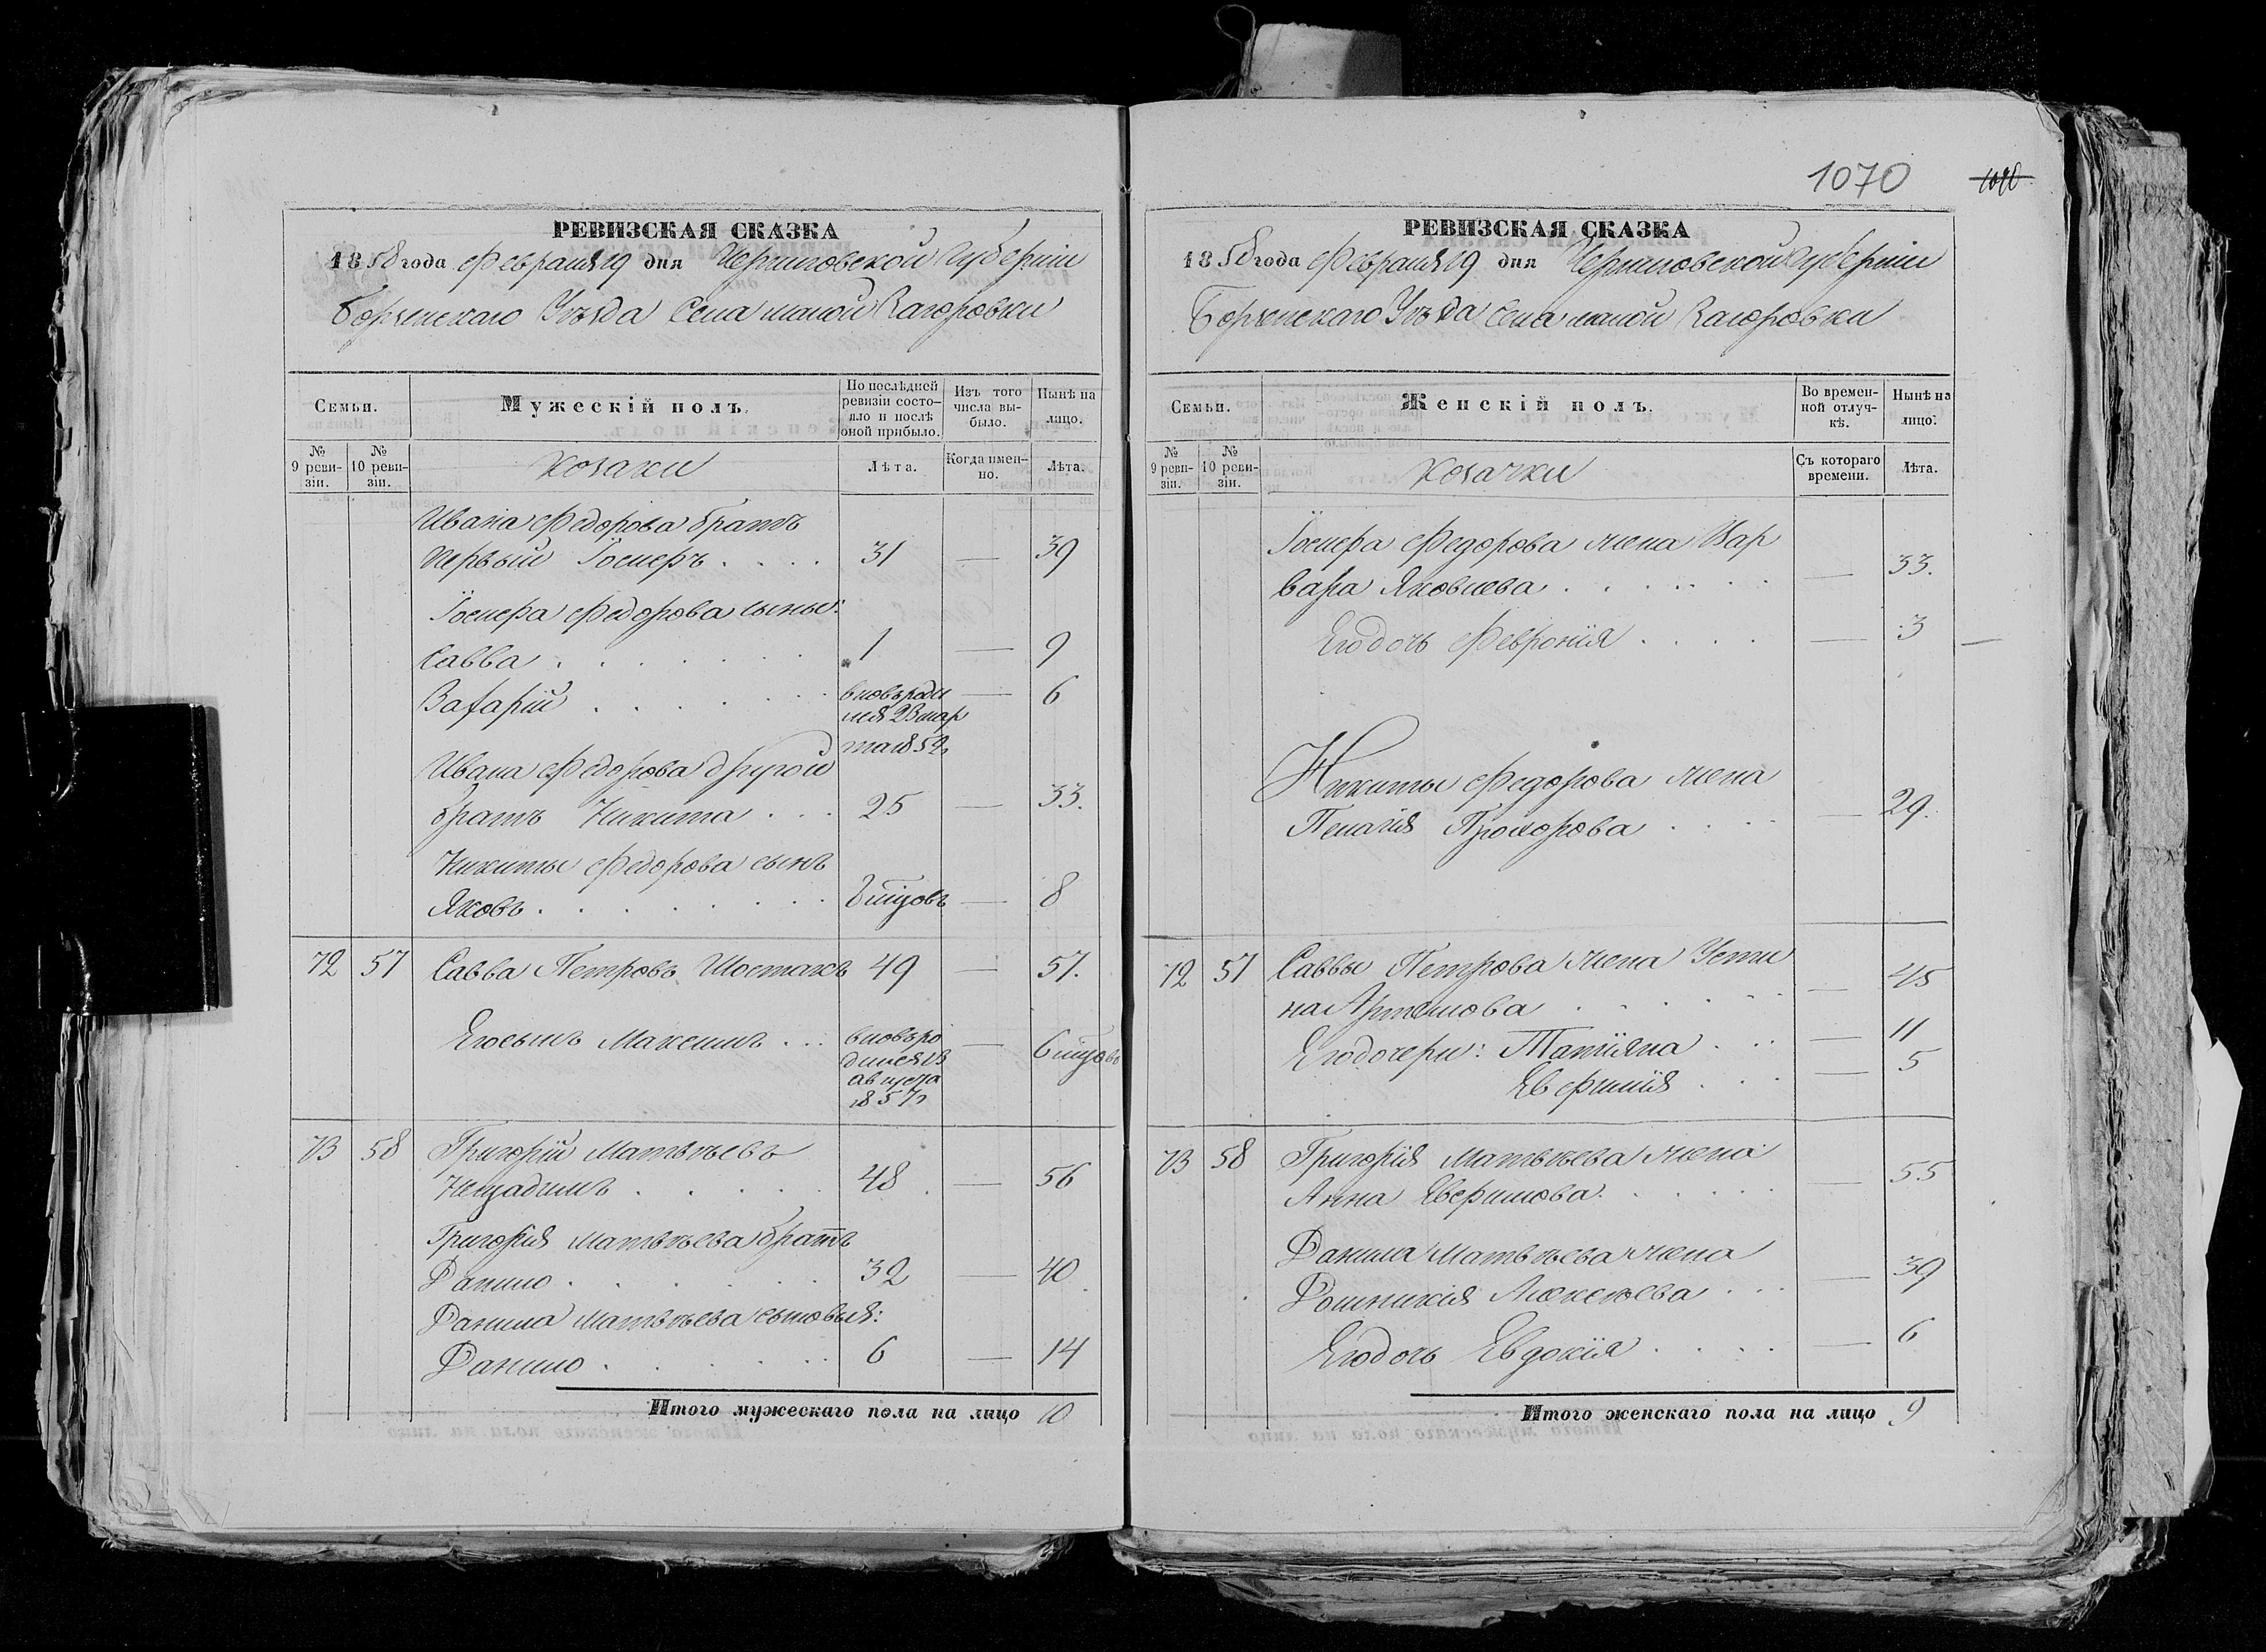 1070
1070
РЕВИЗСКАЯ СКАЗКА
1858 года Февраля 19 дня Черниговской Губерніи
Борзенскаго Уѣзда Села малой Загоровки
Семьи.
Мужескій полъ.
По послѣдней ревизіи состояло и послѣ оной прибыло.
Изъ того числа выбыло.
Нынѣ на лицо.
№ 9 ревизіи.
№ 10 ревизіи.
козаки
Лѣта.
Когда именно.
Лѣта.
Ивана Федорова братъ
первый Іосифъ . . . . 31 — 39
Іосифа Федорова сыны:
Савва . . . . . . 1 — 9
Захарій . . . . . вновь роди — 6
лся 23 мар
та 1852
Ивана Федорова другой
братъ Никита . . . 25 — 33.
Никиты Федорова сынъ
Яковъ . . . . . . . — 8
72 57 Савва Петровъ Шостакъ 49 — 57.
Его сынъ Максимъ . . . вновь ро —
дился 13
августа
1857
73 58 Григорій Матвѣевъ
48 — 56
Григорія Матвѣева братъ
Данило . . . . . . 32 — 40
Данила Матвѣева сыновья:
Данило . . . . . . 6 — 14
Итого мужескаго пола на лицо 10
РЕВИЗСКАЯ СКАЗКА
1858 года Февраля 19 дня Черниговской Губерніи
Борзенскаго Уѣзда Села малой Загоровки
Семьи.
Женскій полъ.
Во временной отлучкѣ.
Нынѣ на лицо.
№ 9 ревизіи.
№ 10 ревизіи.
козачки
Съ котораго времени.
Лѣта.
Іосифа Федорова жена Вар
вара Яковлева . . . . . . — 33.
Его дочь Февронія . . . . — 3
Никиты Федорова жена
Пелагія Прохорова . . . . — 29.
72 57 Саввы Петрова жена Усти
на Артемова . . . . . — 45
Его дочери: Татіяна . . . — 11
Евфимія . . . — 5
73 58 Григорія Матвѣева жена
Анна . . . . . — 55
Данила Матвѣева жена
Домникія Алексѣева . . . — 39
Его дочь Евдокія . . . . — 6
Итого женскаго пола на лицо 9